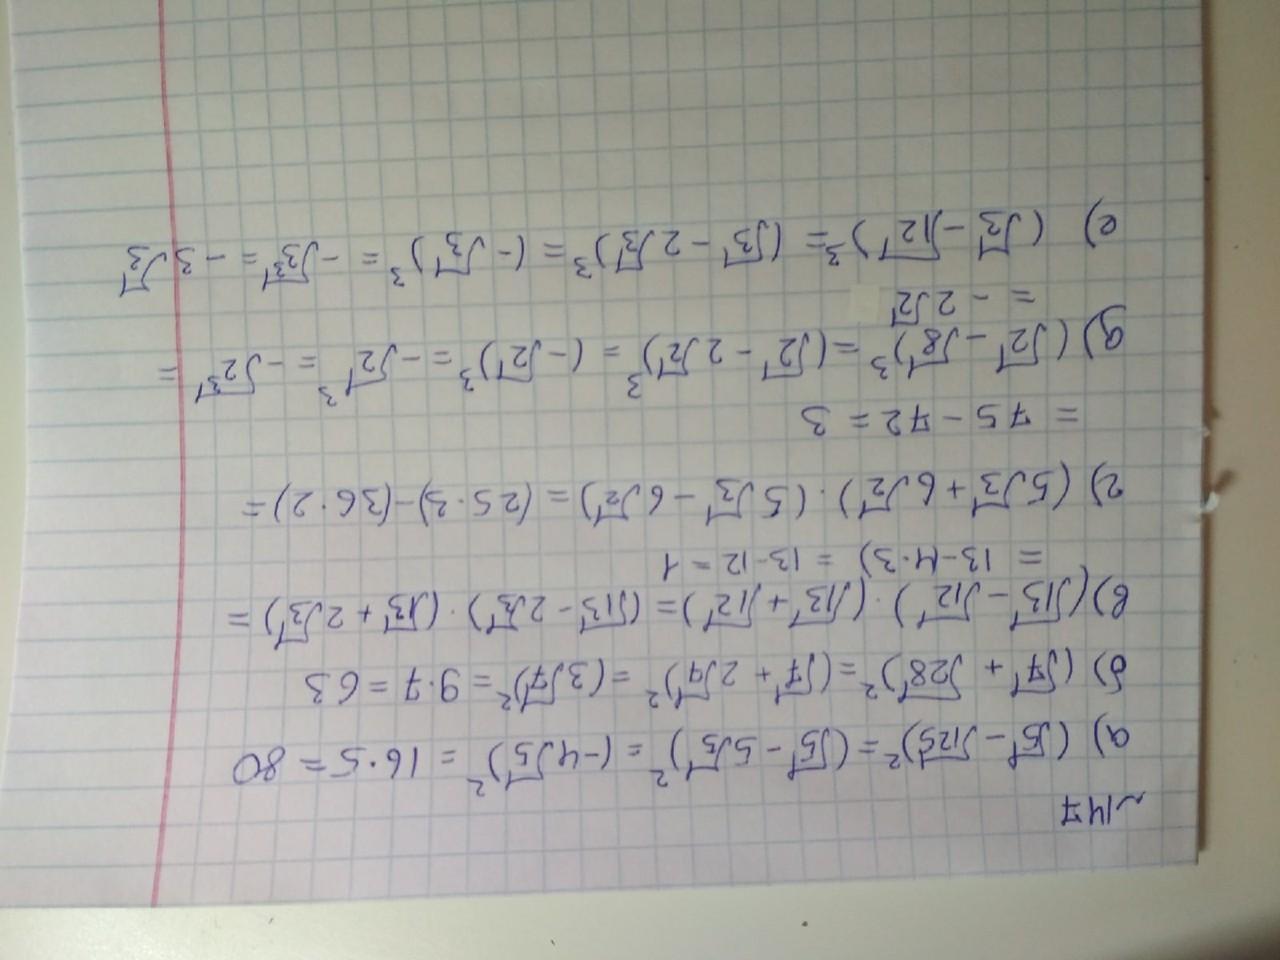 ~147
а) (√5 - √125)² = (√5 - 5√5)² = (-4√5)² = 16·5 = 80
б) (√7 + √28)² = (√7 + 2√7)² = (3√7)² = 9·7 = 63
в) (√13 - √12)·(√13 + √12) = (√13 - 2√3)·(√13 + 2√3) =
= 13-(4·3) = 13-12 = 1
г) (5√3 + 6√2)·(5√3 - 6√2) = (25·3)-(36·2) =
= 75 - 72 = 3
д) (√2 - √8)³ = (√2 - 2√2)³ = (-√2)³ = -√2³ = -√2³ =
= - 2√2
е) (√3 - √12)³ = (√3 - 2√3)³ = (-√3)³ = -√3³ = -3√3